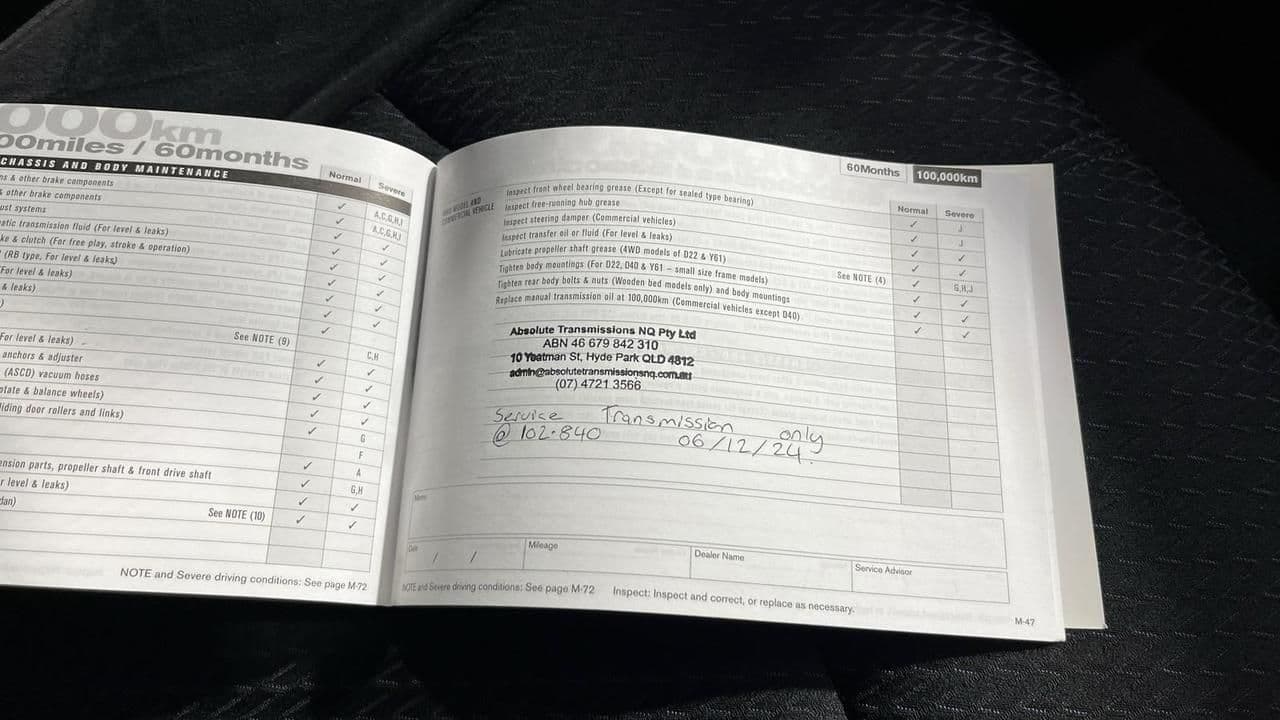 000km
00miles / 60months
CHASSIS AND BODY MAINTENANCE
Normal
Severe
& other brake components
other brake components
systems
transmission fluid (For level & leaks)
& clutch (For free play, stroke & operation)
(RB type, For level & leaks)
For level & leaks)
& leaks)
For level & leaks)
See NOTE (9)
anchors & adjuster
(ASCD) vacuum hoses
& balance wheels)
door rollers and links)
parts, propeller shaft & front drive shaft
level & leaks)
See NOTE (10)
✓ A,C,G,H,J
✓ A,C,G,H,J
✓ ✓
✓ ✓
✓ ✓
✓ ✓
✓ ✓
✓
✓
C,H
✓ ✓
✓ ✓
✓ ✓
✓ ✓
✓ G
F
✓ A
✓ G,H
✓ ✓
✓ ✓
NOTE and Severe driving conditions: See page M-72
60Months
100,000km
Normal
Severe
4WD MODEL AND
COMMERCIAL VEHICLE
Inspect front wheel bearing grease (Except for sealed type bearing) ✓ J
Inspect free-running hub grease ✓ J
Inspect steering damper (Commercial vehicles) ✓ ✓
Inspect transfer oil or fluid (For level & leaks) ✓ ✓
Lubricate propeller shaft grease (4WD models of D22 & Y61) See NOTE (4) ✓ G,H,J
Tighten body mountings (For D22, D40 & Y61 – small size frame models) ✓ ✓
Tighten rear body bolts & nuts (Wooden bed models only) and body mountings ✓ ✓
Replace manual transmission oil at 100,000km (Commercial vehicles except D40) ✓ ✓
Absolute Transmissions NQ Pty Ltd
ABN 46 679 842 310
10 Yeatman St, Hyde Park QLD 4812
admin@absolutetransmissionsnq.com.au
(07) 4721 3566
Service Transmission only
@ 102.840 06/12/24.
Memo
Date
/ /
Mileage
Dealer Name
Service Advisor
NOTE and Severe driving conditions: See page M-72 Inspect: Inspect and correct, or replace as necessary.
M-47